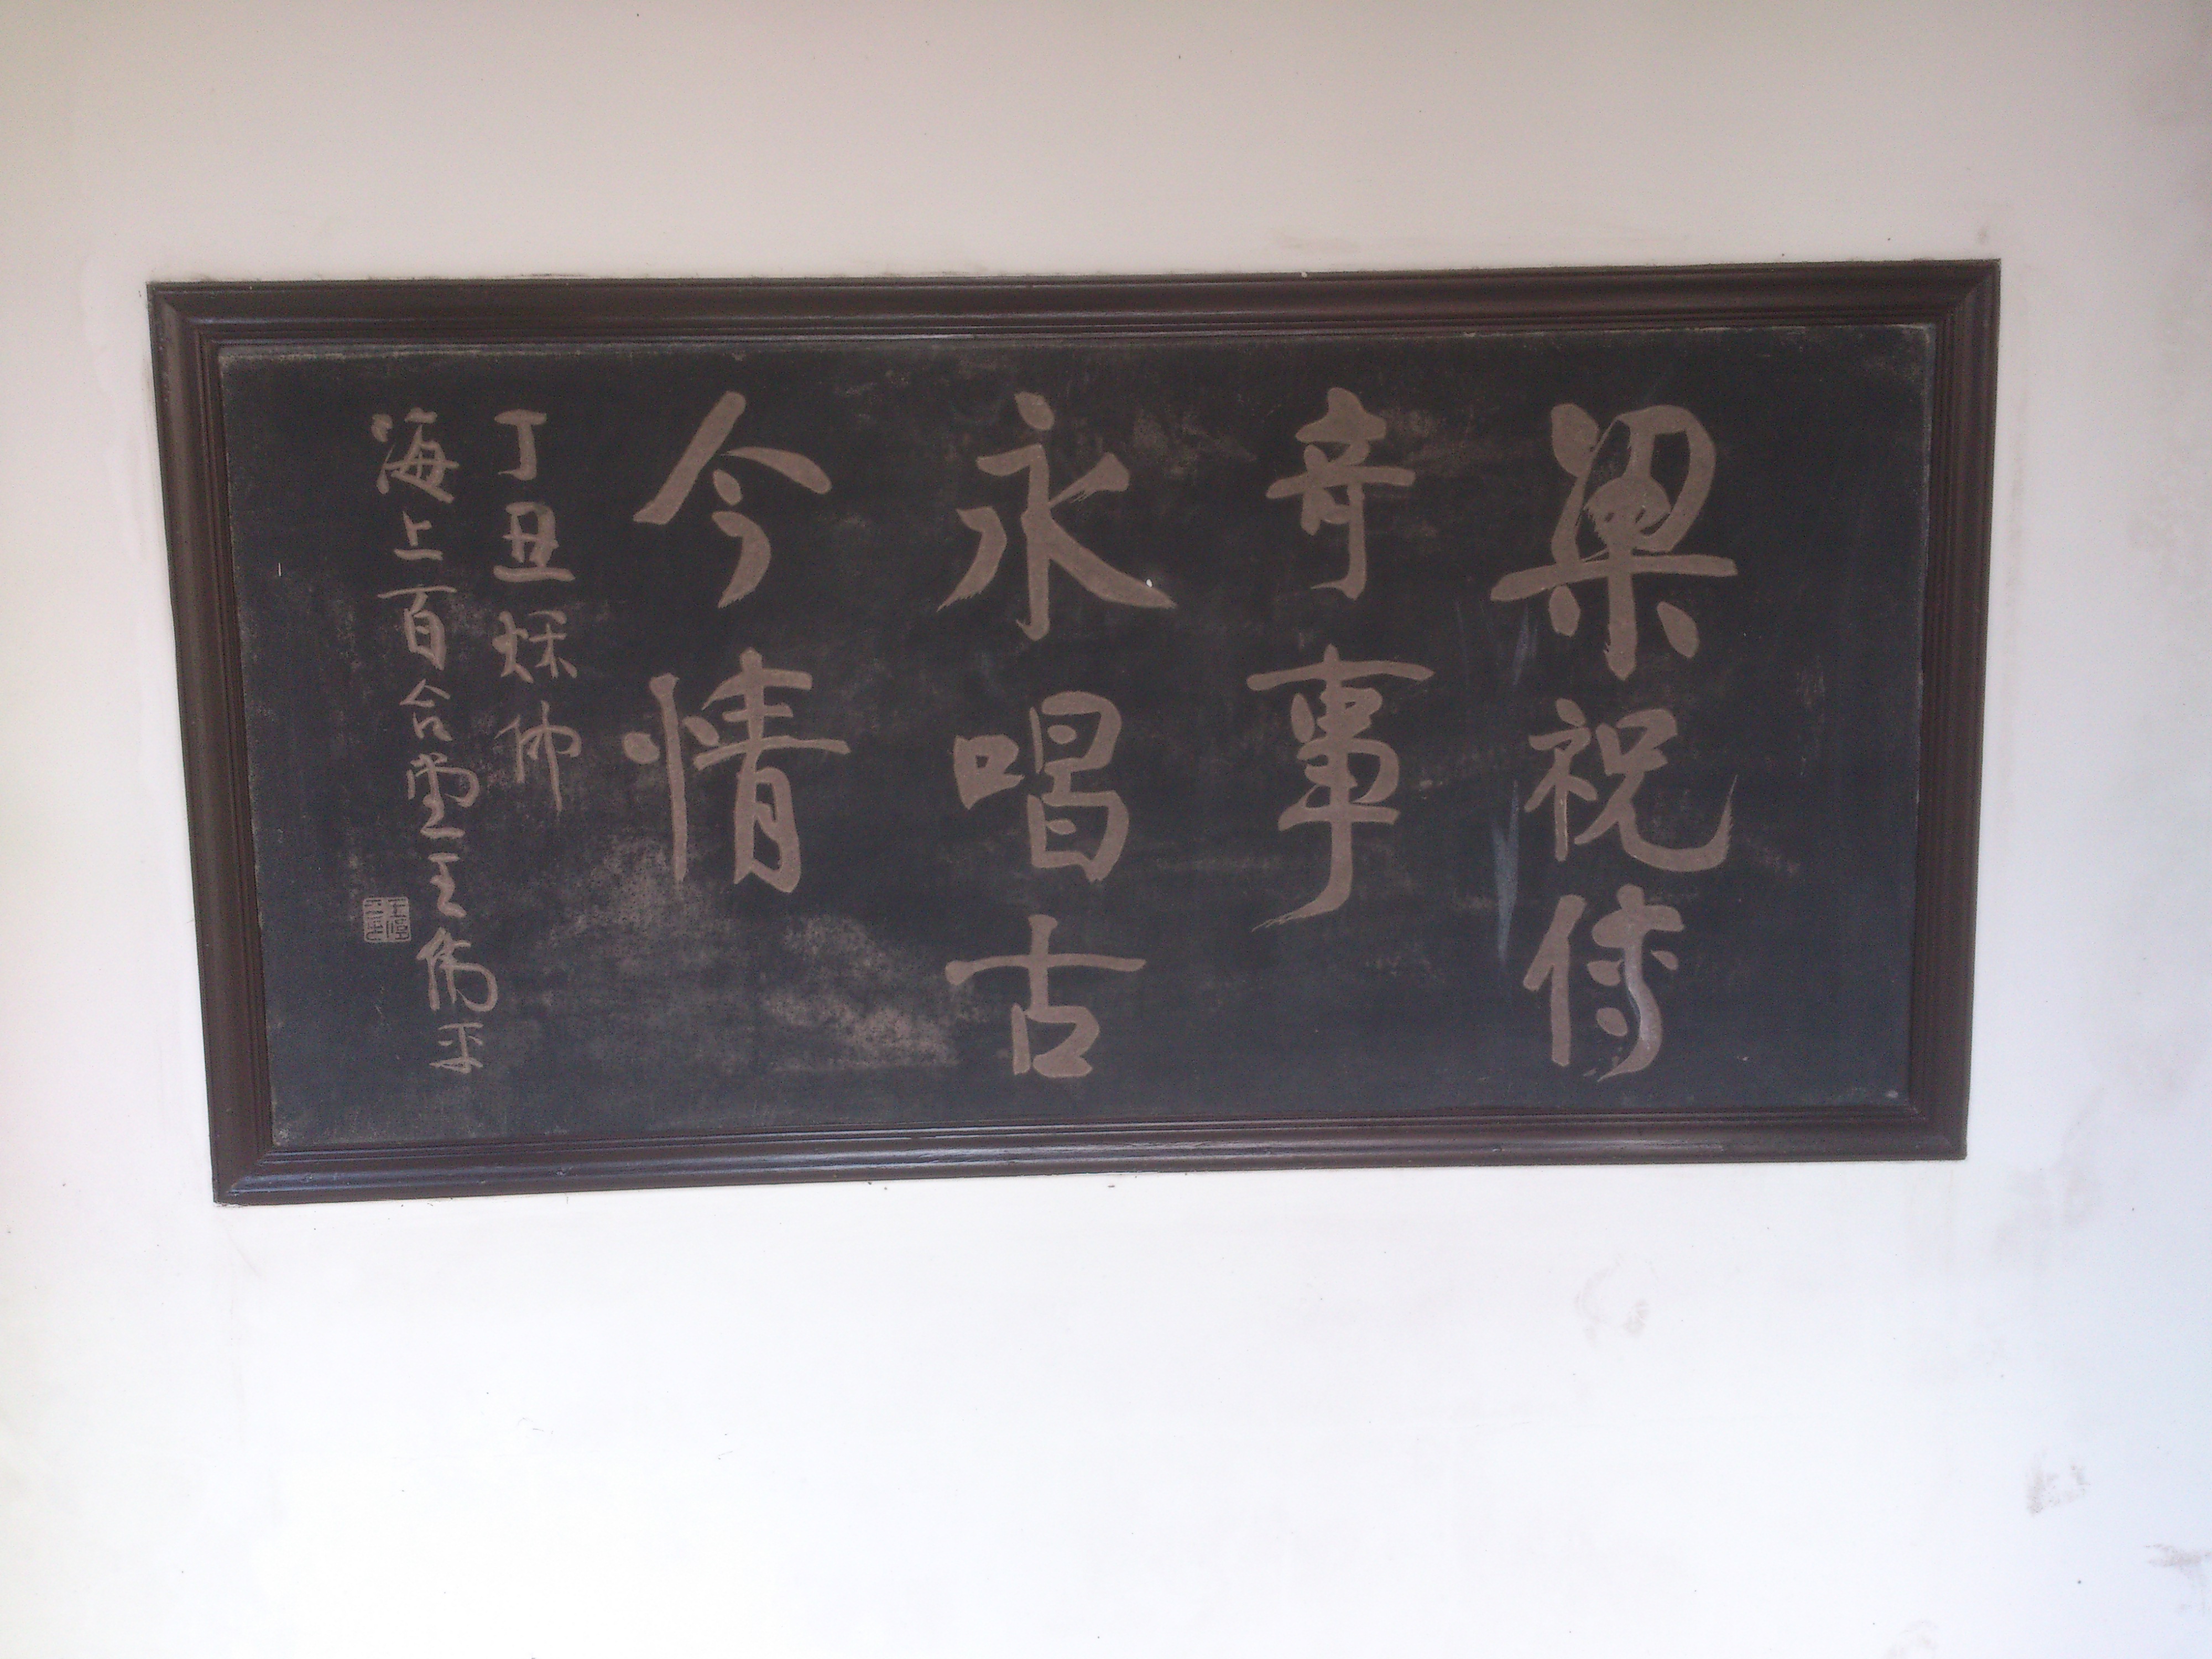 梁祝傳
奇事
永唱古
今情
丁丑秋仲
海上百合堂王偉平